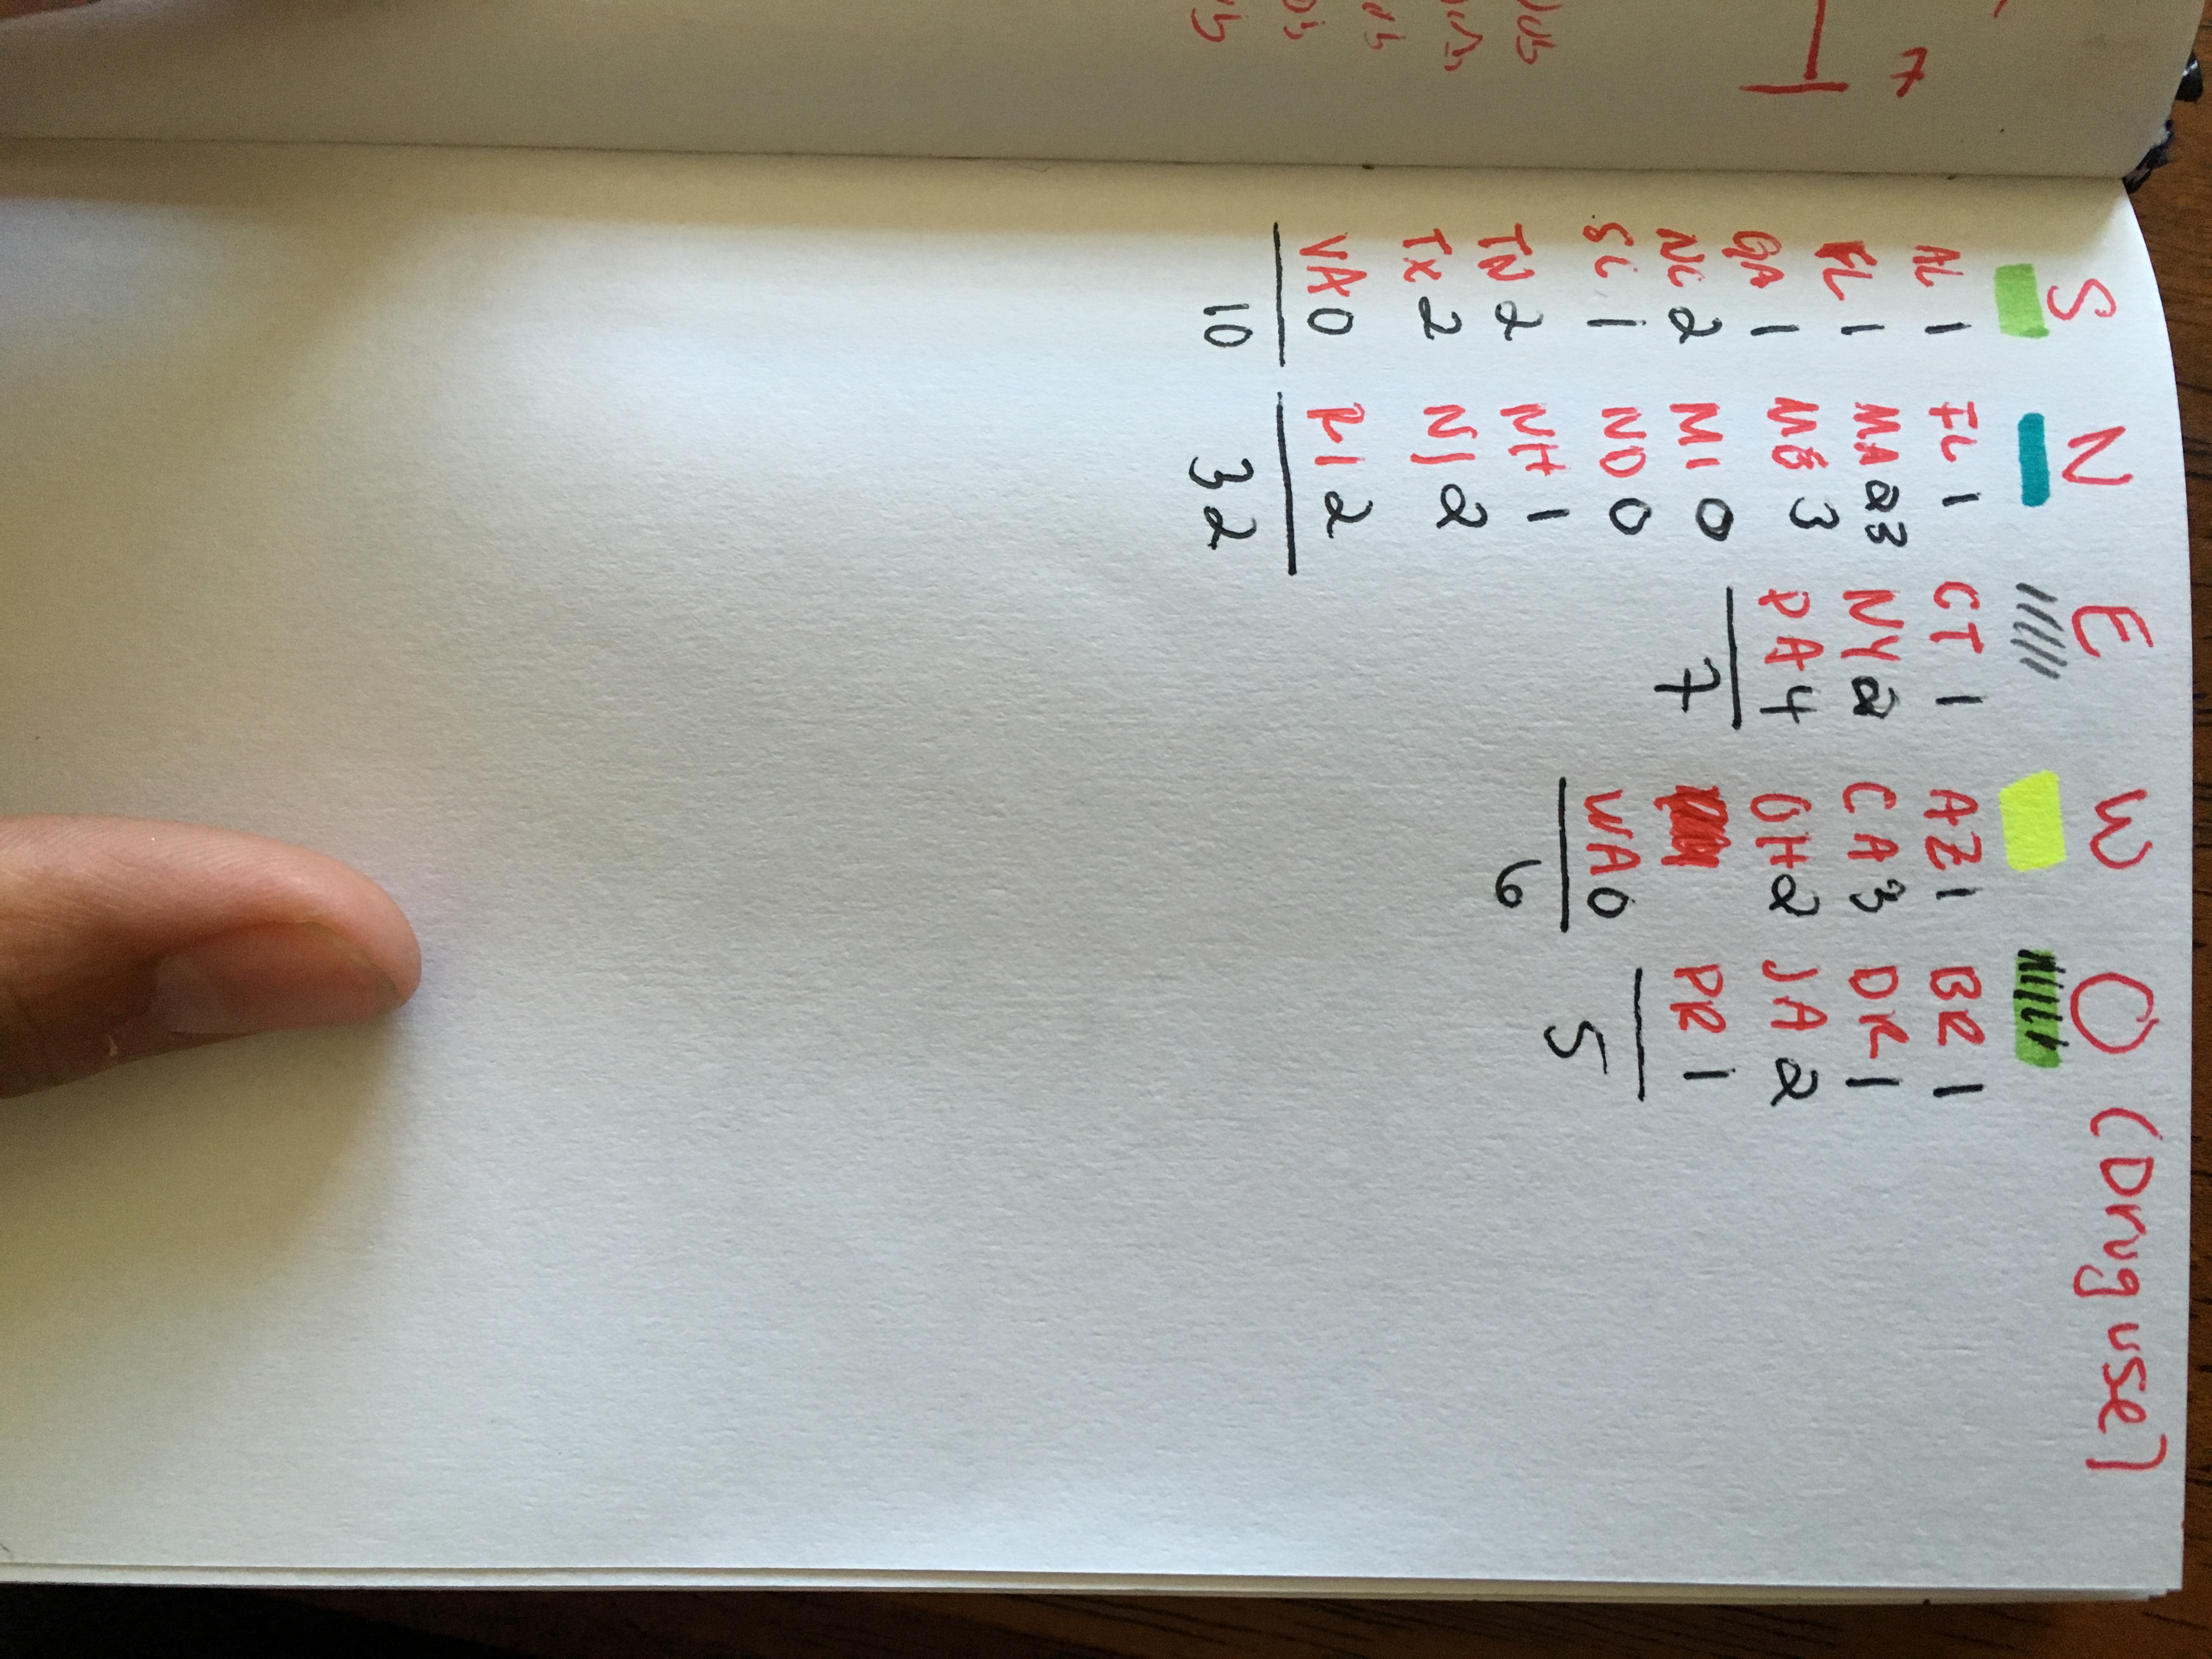 S N E W O (Drug use)
AL 1 IL 1 CT 1 AZ 1 BR 1
FL 1 MA 23 NY 2 CA 3 DR 1
GA 1 ME 3 PA 4 OH 2 JA 2
NC 2 MI 0 7 PR 1
SC 1 ND 0 WA 0 5
TN 2 NH 1 6
TX 2 NJ 2
VA 0 RI 2
10 32
7